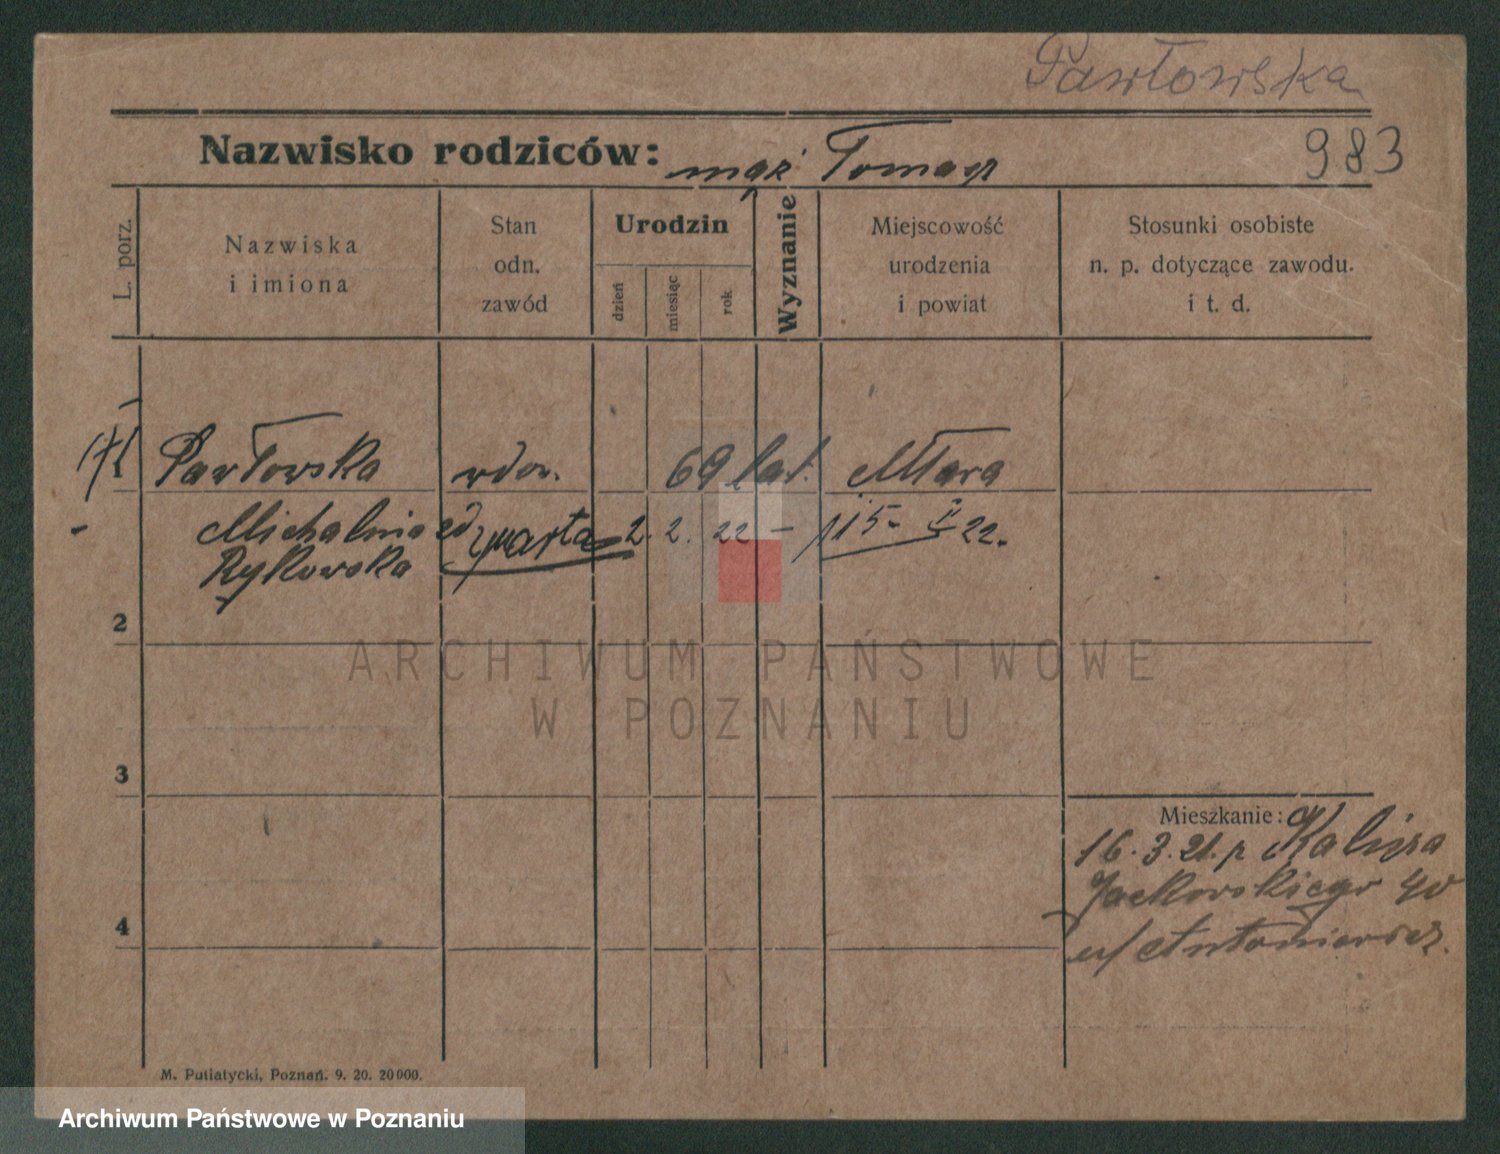 Pawłowska
Nazwisko rodziców: mąż Tomasz
983
L. porz.
Nazwiska
i imiona
Stan
odn.
zawód
Urodzin
dzień
miesiąc
rok
Wyznanie
Miejscowość
urodzenia
i powiat
Stosunki osobiste
n. p. dotyczące zawodu.
i t. d.
1 Pawłowska wdow. 69 lat.
Michalina zd zmarła 2. 2. 22 - 15- II 22.
Rykowska
2
3
4
Mieszkanie:
16. 3. 21. p Kalisza
Jackowskiego 40
u/ Antoniewicz.
M. Putiatycki, Poznań. 9. 20. 20000.
ARCHIWUM PAŃSTWOWE
W POZNANIU
Archiwum Państwowe w Poznaniu